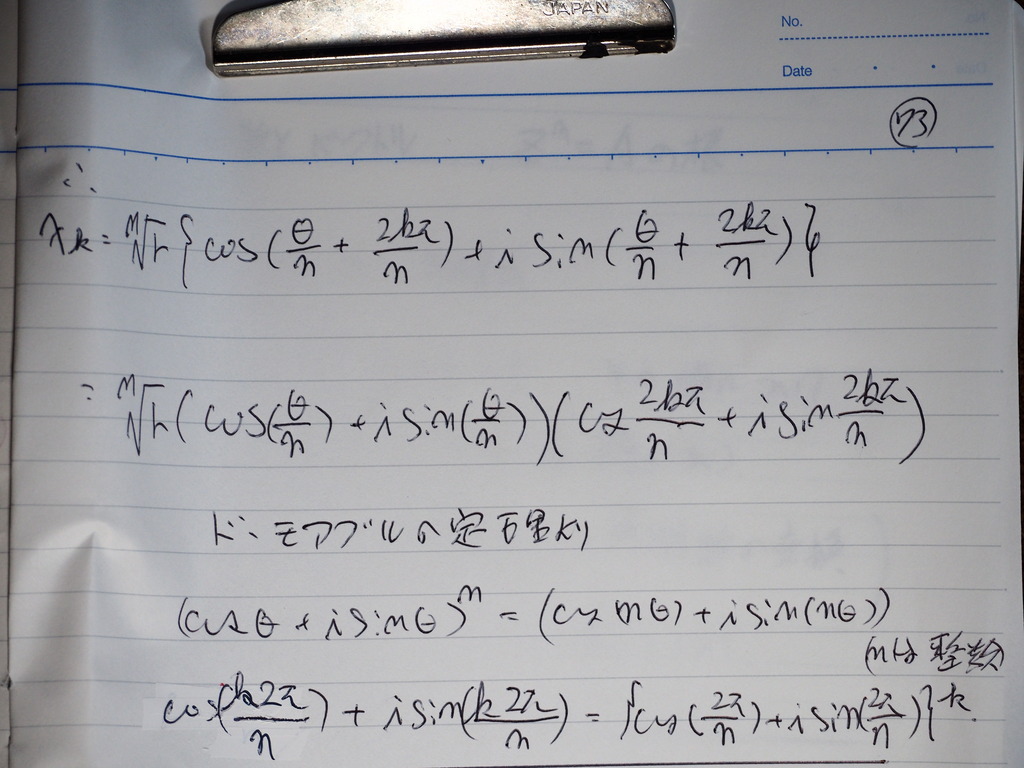 JAPAN
No.
Date
73
∴
λk = ⁿ√r { cos(θ/n + 2kπ/n) + i sin(θ/n + 2kπ/n) }
= ⁿ√r (cos(θ/n) + i sin(θ/n)) (cos 2kπ/n + i sin 2kπ/n)
ド・モアブルの定理より
(cosθ + i sinθ)ⁿ = (cos nθ) + i sin(nθ))
(nは整数)
cos(k2π/n) + i sin(k2π/n) = {cos(2π/n) + i sin(2π/n)}ᵏ